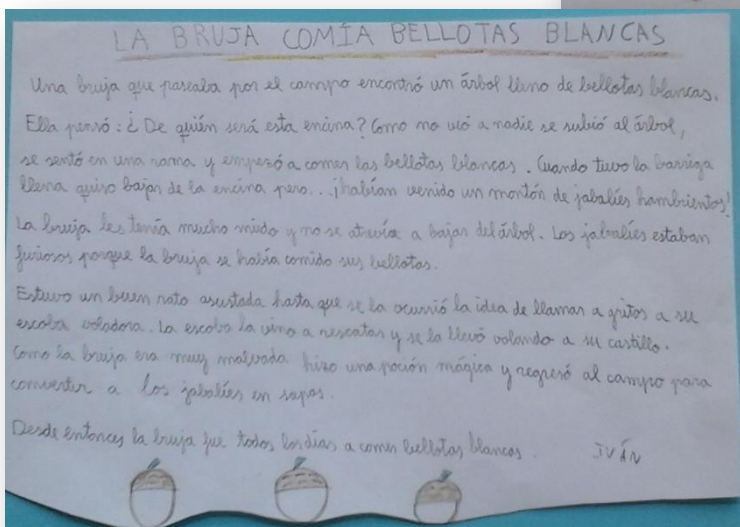 LA BRUJA COMÍA BELLOTAS BLANCAS
Una bruja que paseaba por el campo encontró un árbol lleno de bellotas blancas.
Ella pensó: ¿De quién será esta encina? Como no vió a nadie se subió al árbol,
se sentó en una rama y empezó a comer las bellotas blancas. Cuando tuvo la barriga
llena quiso bajar de la encina pero... ¡habían venido un montón de jabalíes hambrientos!
La bruja les tenía mucho miedo y no se atrevía a bajar del árbol. Los jabalíes estaban
furiosos porque la bruja se había comido sus bellotas.
Estuvo un buen rato asustada hasta que se la ocurrió la idea de llamar a gritos a su
escoba voladora. La escoba la vino a rescatar y se la llevó volando a su castillo.
Como la bruja era muy malvada hizo una poción mágica y regresó al campo para
convertir a los jabalíes en sapos.
Desde entonces la bruja fue todos los días a comer bellotas blancas. IVÁN